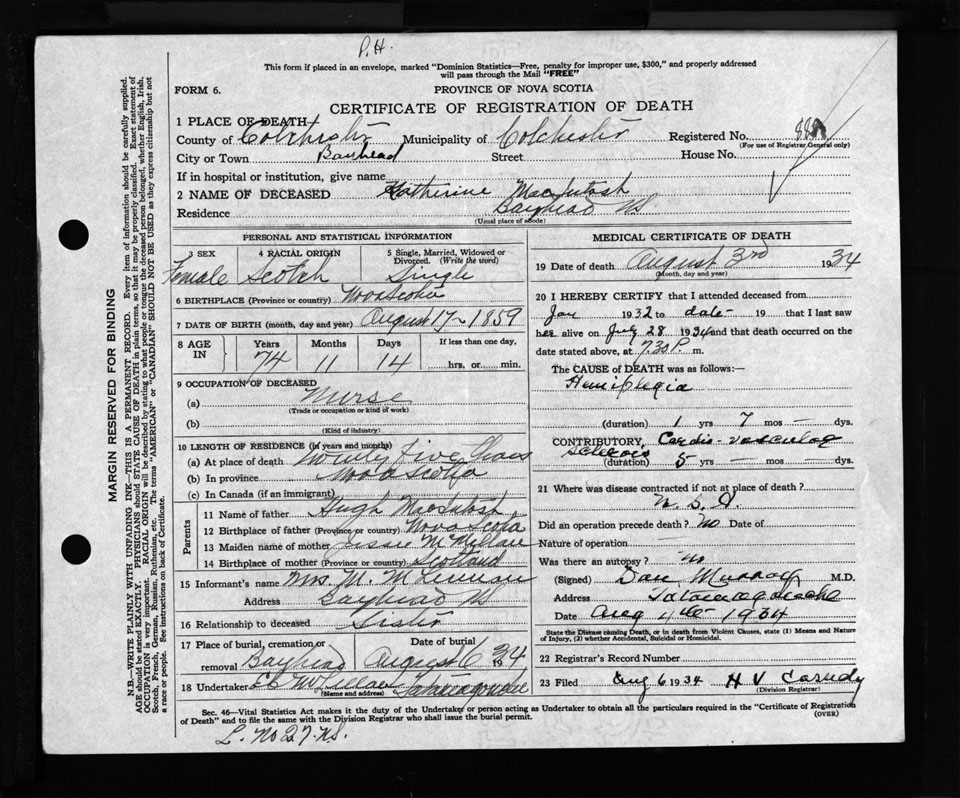 P.H.
This form if placed in an envelope, marked "Dominion Statistics—Free, penalty for improper use, $300," and properly addressed
will pass through the Mail "FREE"
FORM 6.
PROVINCE OF NOVA SCOTIA
CERTIFICATE OF REGISTRATION OF DEATH
1 PLACE OF DEATH
County of Colchester Municipality of Colchester Registered No.
(For use of Registrar General only)
City or Town Bayhead Street House No.
If in hospital or institution, give name
2 NAME OF DECEASED Katherine MacIntosh
Residence Bayhead NS
(Usual place of abode)
PERSONAL AND STATISTICAL INFORMATION
3 SEX 4 RACIAL ORIGIN 5 Single, Married, Widowed or Divorced. (Write the word)
Female Scotch Single
6 BIRTHPLACE (Province or country) Nova Scotia
7 DATE OF BIRTH (month, day and year) August 17 1859
8 AGE IN Years Months Days If less than one day,
74 11 14 hrs. or min.
9 OCCUPATION OF DECEASED
(a) Nurse
(Trade or occupation or kind of work)
(b)
(Kind of industry)
10 LENGTH OF RESIDENCE (in years and months)
(a) At place of death Twenty Five Years
(b) In province Nova Scotia
(c) In Canada (if an immigrant)
Parents
11 Name of father Hugh MacIntosh
12 Birthplace of father (Province or country) Nova Scotia
13 Maiden name of mother Jessie McMillan
14 Birthplace of mother (Province or country) Scotland
15 Informant's name Mrs. M. McLennan
Address Bayhead NS
16 Relationship to deceased Sister
17 Place of burial, cremation or removal Bayhead
Date of burial August 6 1934
18 Undertaker Tatamagouche
(Name and address)
MEDICAL CERTIFICATE OF DEATH
19 Date of death August 3rd 1934
(Month, day and year)
20 I HEREBY CERTIFY that I attended deceased from
Jan 1932 to date 19 that I last saw
her alive on July 28 1934 and that death occurred on
date stated above, at 7.30 P. m.
The CAUSE of DEATH was as follows:—
Hemiplegia
(duration) 1 yrs 7 mos — dys.
CONTRIBUTORY, Cardio-vascular
Sclerosis
(duration) 5 yrs — mos — dys.
21 Where was disease contracted if not at place of death?
Did an operation precede death? No Date of
Nature of operation
Was there an autopsy? no
(Signed) Dan Murray M.D.
Address Tatamagouche
Date Aug 4th 1934
State the Disease causing Death, or to death from Violent Causes, state (1) Means and Nature of Injury, (2) whether Accidental, Suicidal or Homicidal.
22 Registrar's Record Number
23 Filed Aug 6 1934 H V Cassidy
(Division Registrar)
Sec. 46—Vital Statistics Act makes it the duty of the Undertaker or person acting as Undertaker to obtain all the particulars required in the "Certificate of Registration
of Death" and to file the same with the Division Registrar who shall issue the burial permit.
(OVER)
L. No 27. NS.
MARGIN RESERVED FOR BINDING
N.B.—WRITE PLAINLY WITH UNFADING INK—THIS IS A PERMANENT RECORD. Every item of information should be carefully supplied.
AGE should be stated EXACTLY. PHYSICIANS should STATE CAUSE OF DEATH in plain terms, so that it may be properly classified. Exact statement of
OCCUPATION is very important. RACIAL ORIGIN will be described by stating to what people or tongue the deceased person belonged, whether English, Irish,
Scotch, French, German, Russian, Ruthenian, etc. The terms "AMERICAN" or "CANADIAN" SHOULD NOT BE USED as they express citizenship but not
a race or people. See instructions on back of Certificate.